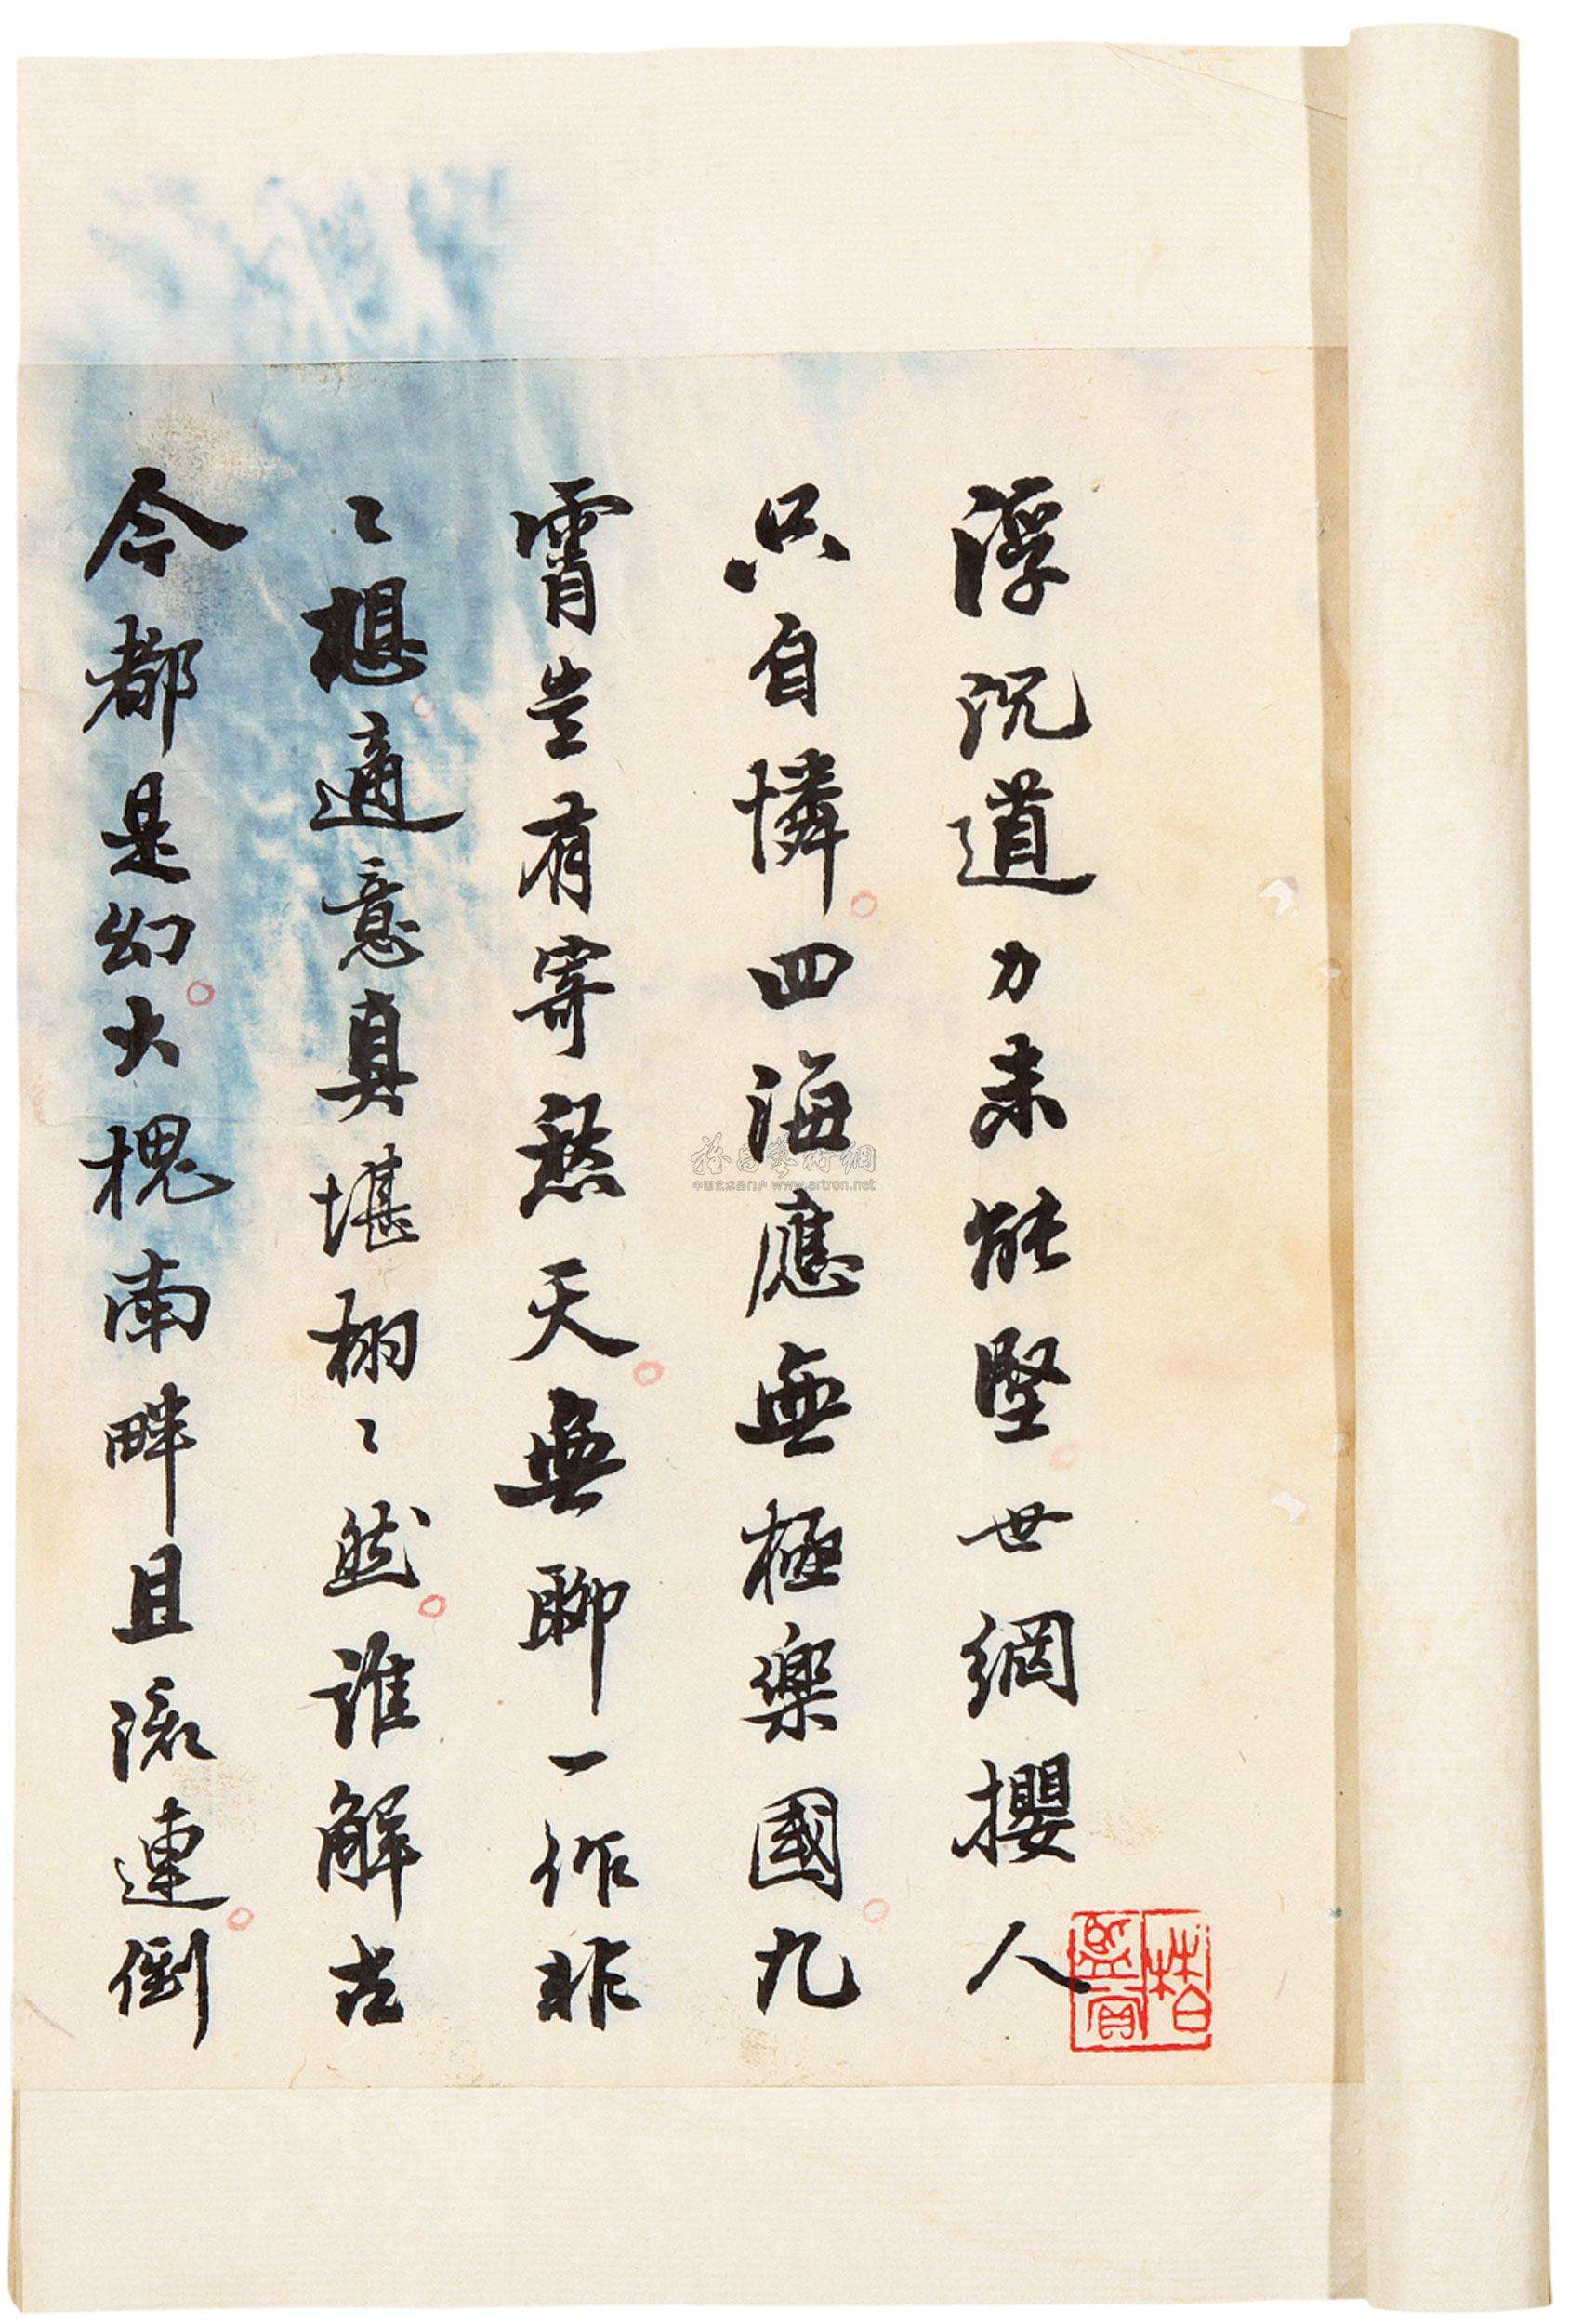 浮沉道力未能堅世網攖人
只自憐四海應無極樂國九
霄豈有寄愁天無聊一作非
〻想適意真堪栩〻然誰解古
今都是幻大槐南畔且流連倒
雅昌藝術網
中国艺术品门户 www.artron.net